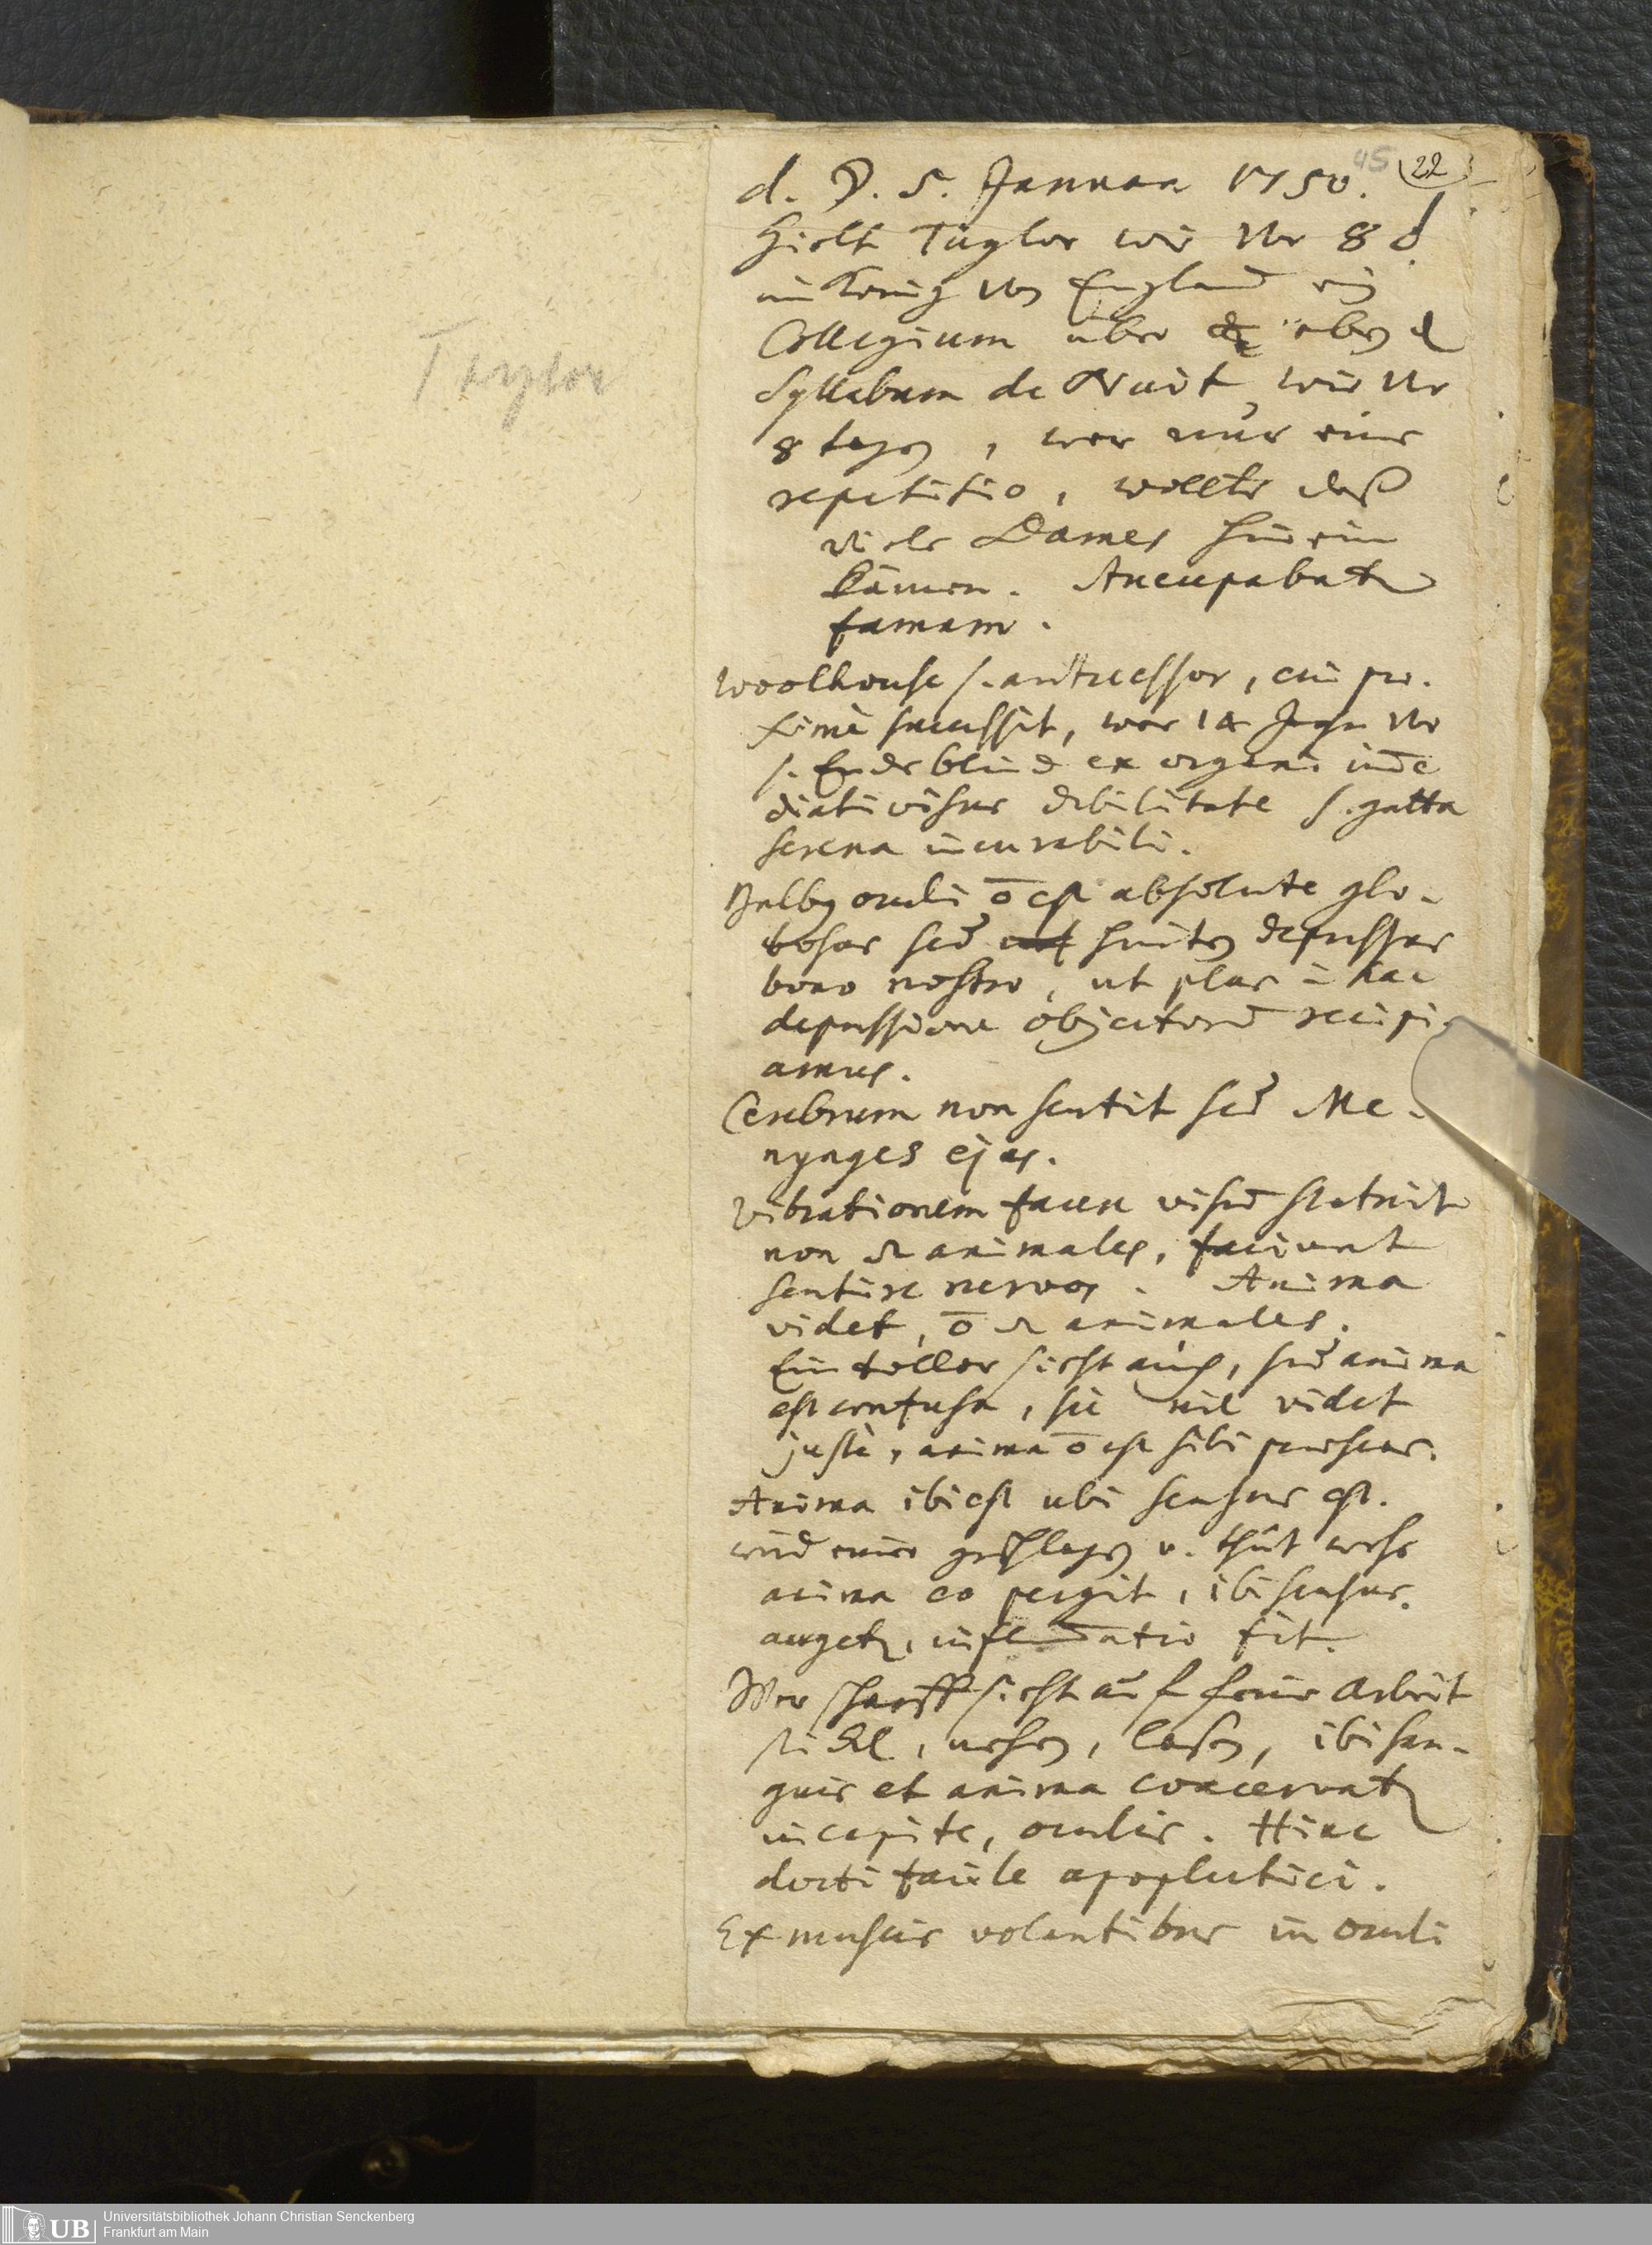 Taylor
45
22
d. ☽. 5. Januar 1750.
Hielt Taylor wie vor 8 d.
im König von England ein
Collegium über eben d
Syllabum de Nuit, wie vor
8 tagen, war nur eine
repetitio, wollte daß
viele Dames hinein
kämen. Aucupabatur
famam.
Woolhouse s. antecessor, cui pro-
ximè successit, war 14 Jahr vor
s. Ende blind ex organi im̄e
diati visus debilitate s. gutta
serena incurabili.
Bulbus oculi ō est absolute glo-
bosus sed hinten depressus
bono nostro, ut plus in hac
depressione objectorum recipi
amus.
Cerebrum non sentit sed Me-
nynges ejus.
Vibrationem facere visum statuit
non animales, faciunt
sentire nervos. Anima
videt, ō animales.
Ein toller sieht auch, sed anima
est confusa, sic nil videt
justè, anima ō est sibi praesens.
Anima ibi est ubi sensus est.
wird einer geschlagen v. thut wehe
anima eo pergit, ibi sensus
augetur, inflam̄atio fit.
Wer scharff sieht auf feine Arbeit
stickt, nehen, lesen, ibi san-
guis et anima coacervatur
in capite, oculis. Hinc
docti facile apoplectici.
Ex muscis volantibus in oculi
Universitätsbibliothek Johann Christian Senckenberg
Frankfurt am Main
UB